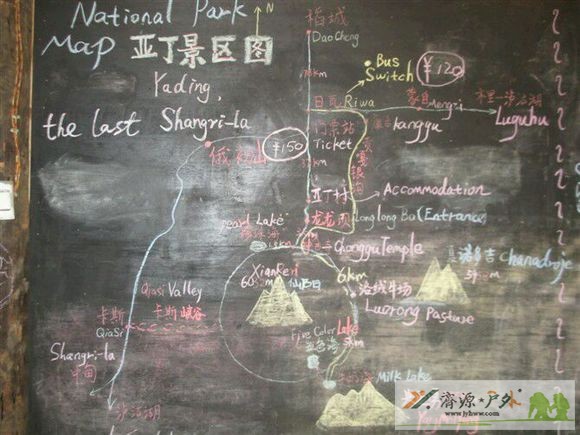 National Park
Map 亚丁景区图
Yading,
the last Shangri-la
N
稻城
DaoCheng
Bus
Switch
¥120
日瓦 Riwa
蒙自 Mengzi
木里-泸沽湖
Luguhu
Kanggu
¥150
门票站
Ticket
俄初山
亚丁村
Accommodation
龙龙坝 Longlong Ba (Entrance)
pearl Lake
珍珠海
ChongguTemple
Xiannairi
仙乃日
6km
洛绒牛场
Luorong Pasture
夏诺多吉 Chanadroje
Qiasi Valley
卡斯
卡斯 峡谷
QiaSi
Five Color Lake
五色海
5km
Shangri-la
中甸
泸沽湖
Milk Lake
济源★户外
www.jyhww.com